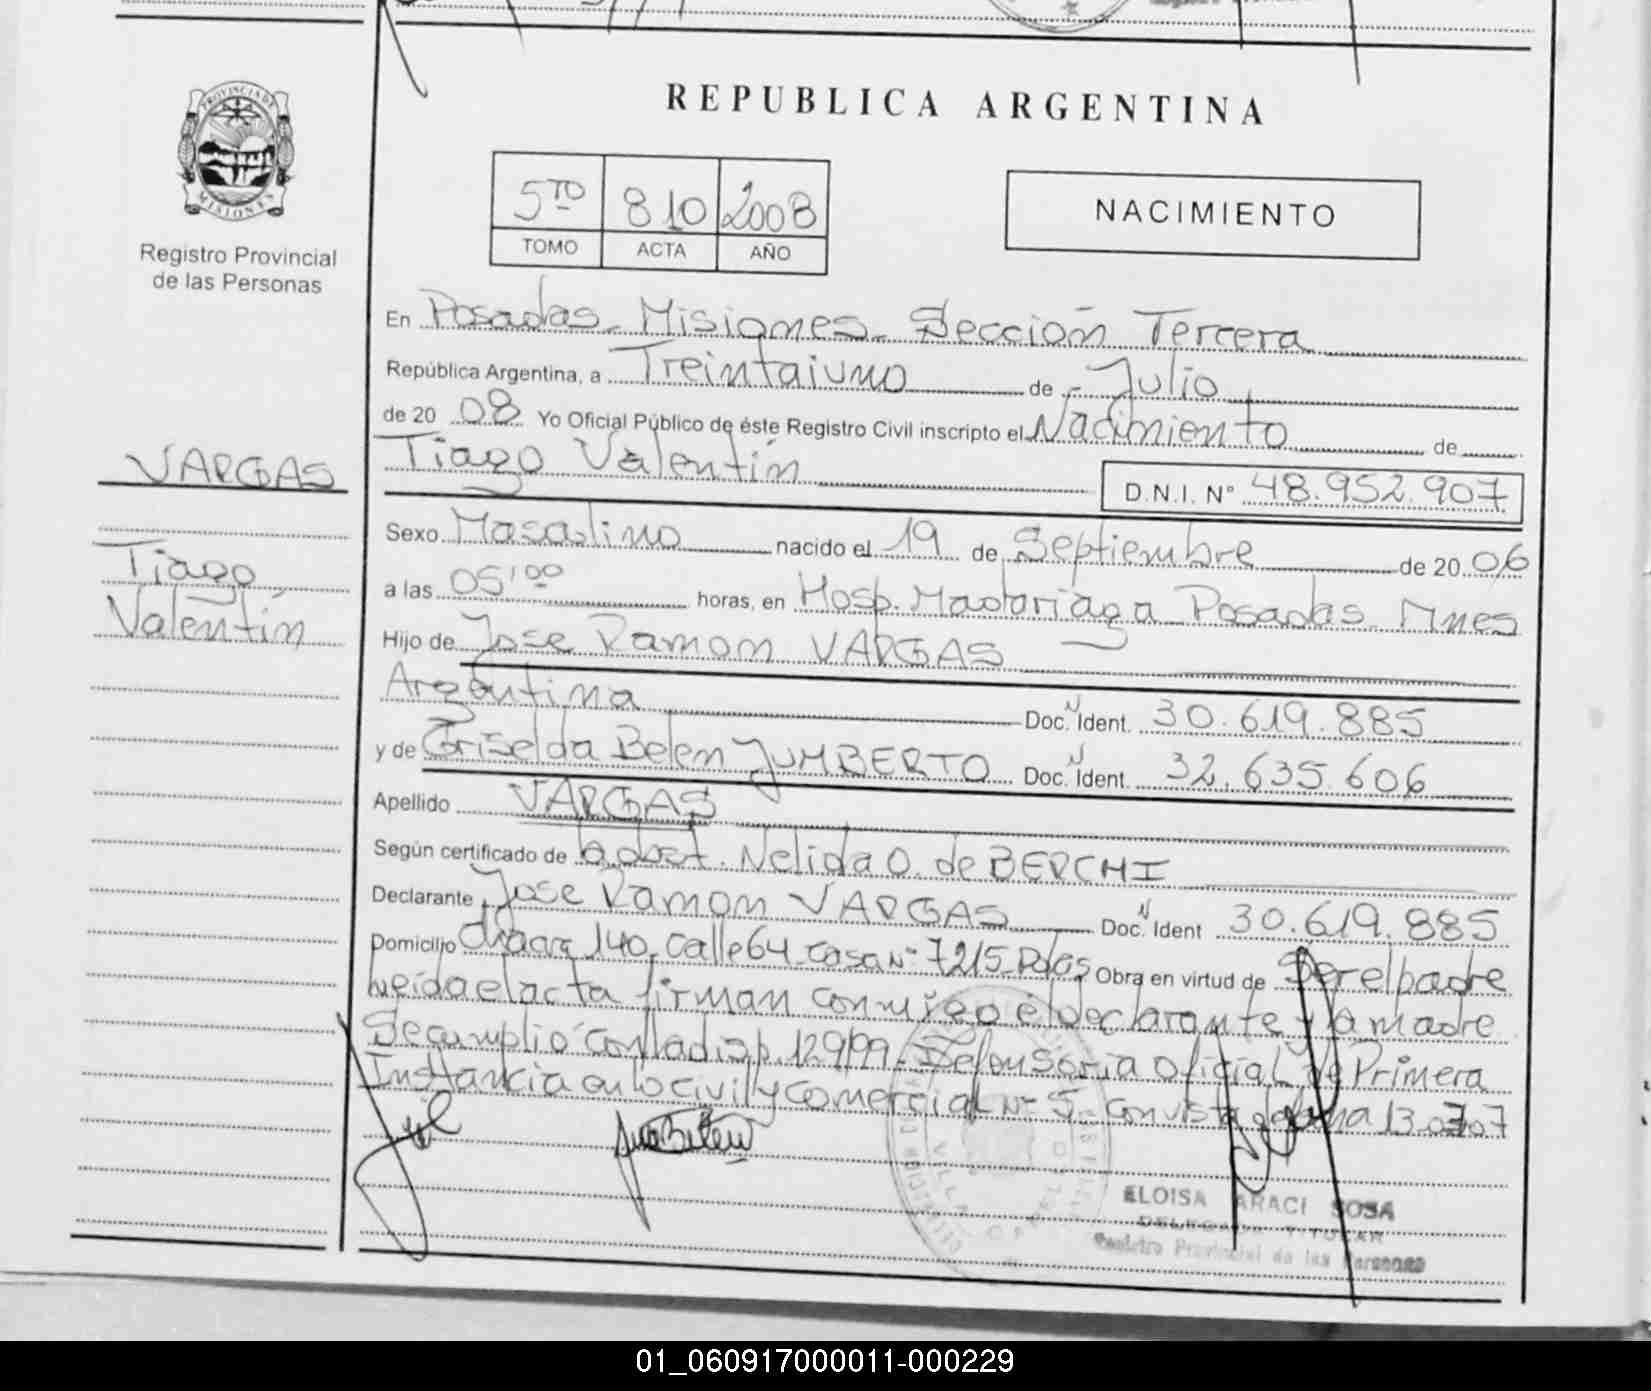 REPUBLICA ARGENTINA
PROVINCIA DE
MISIONES
Registro Provincial
de las Personas
5TO 810 2008
TOMO ACTA AÑO
NACIMIENTO
En Posadas - Misiones - Sección Tercera
República Argentina, a Treintaiuno de Julio
de 20 08 Yo Oficial Público de éste Registro Civil inscripto el Nacimiento de
Tiago Valentín
D.N.I. Nº 48.952.907
VARGAS
Tiago
Valentín
Sexo Masculino nacido el 19 de Septiembre de 20 06
a las 05:00 horas, en Hosp. Madariaga - Posadas - Mnes
Hijo de Jose Ramon VARGAS
Argentina Doc. N Ident. 30.619.885
y de Griselda Belen JUMBERTO Doc. N Ident. 32.635.606
Apellido VARGAS
Según certificado de obst. Nelida O. de BERCHI
Declarante Jose Ramon VARGAS Doc. N Ident 30.619.885
Domicilio Chacra 140, Calle 64 - Casa Nº 7215 - Pdas Obra en virtud de Ser el padre
leida el acta firman conmigo el declarante y la madre
Se cumplió con la disp. 129/99 - Defensoria Oficial de Primera
Instancia en lo civil y comercial Nº 5 - con vista de fecha 13.07.07
ELOISA ARACI SOSA
DELEGADA TITULAR
Registro Provincial de las Personas
01_060917000011-000229